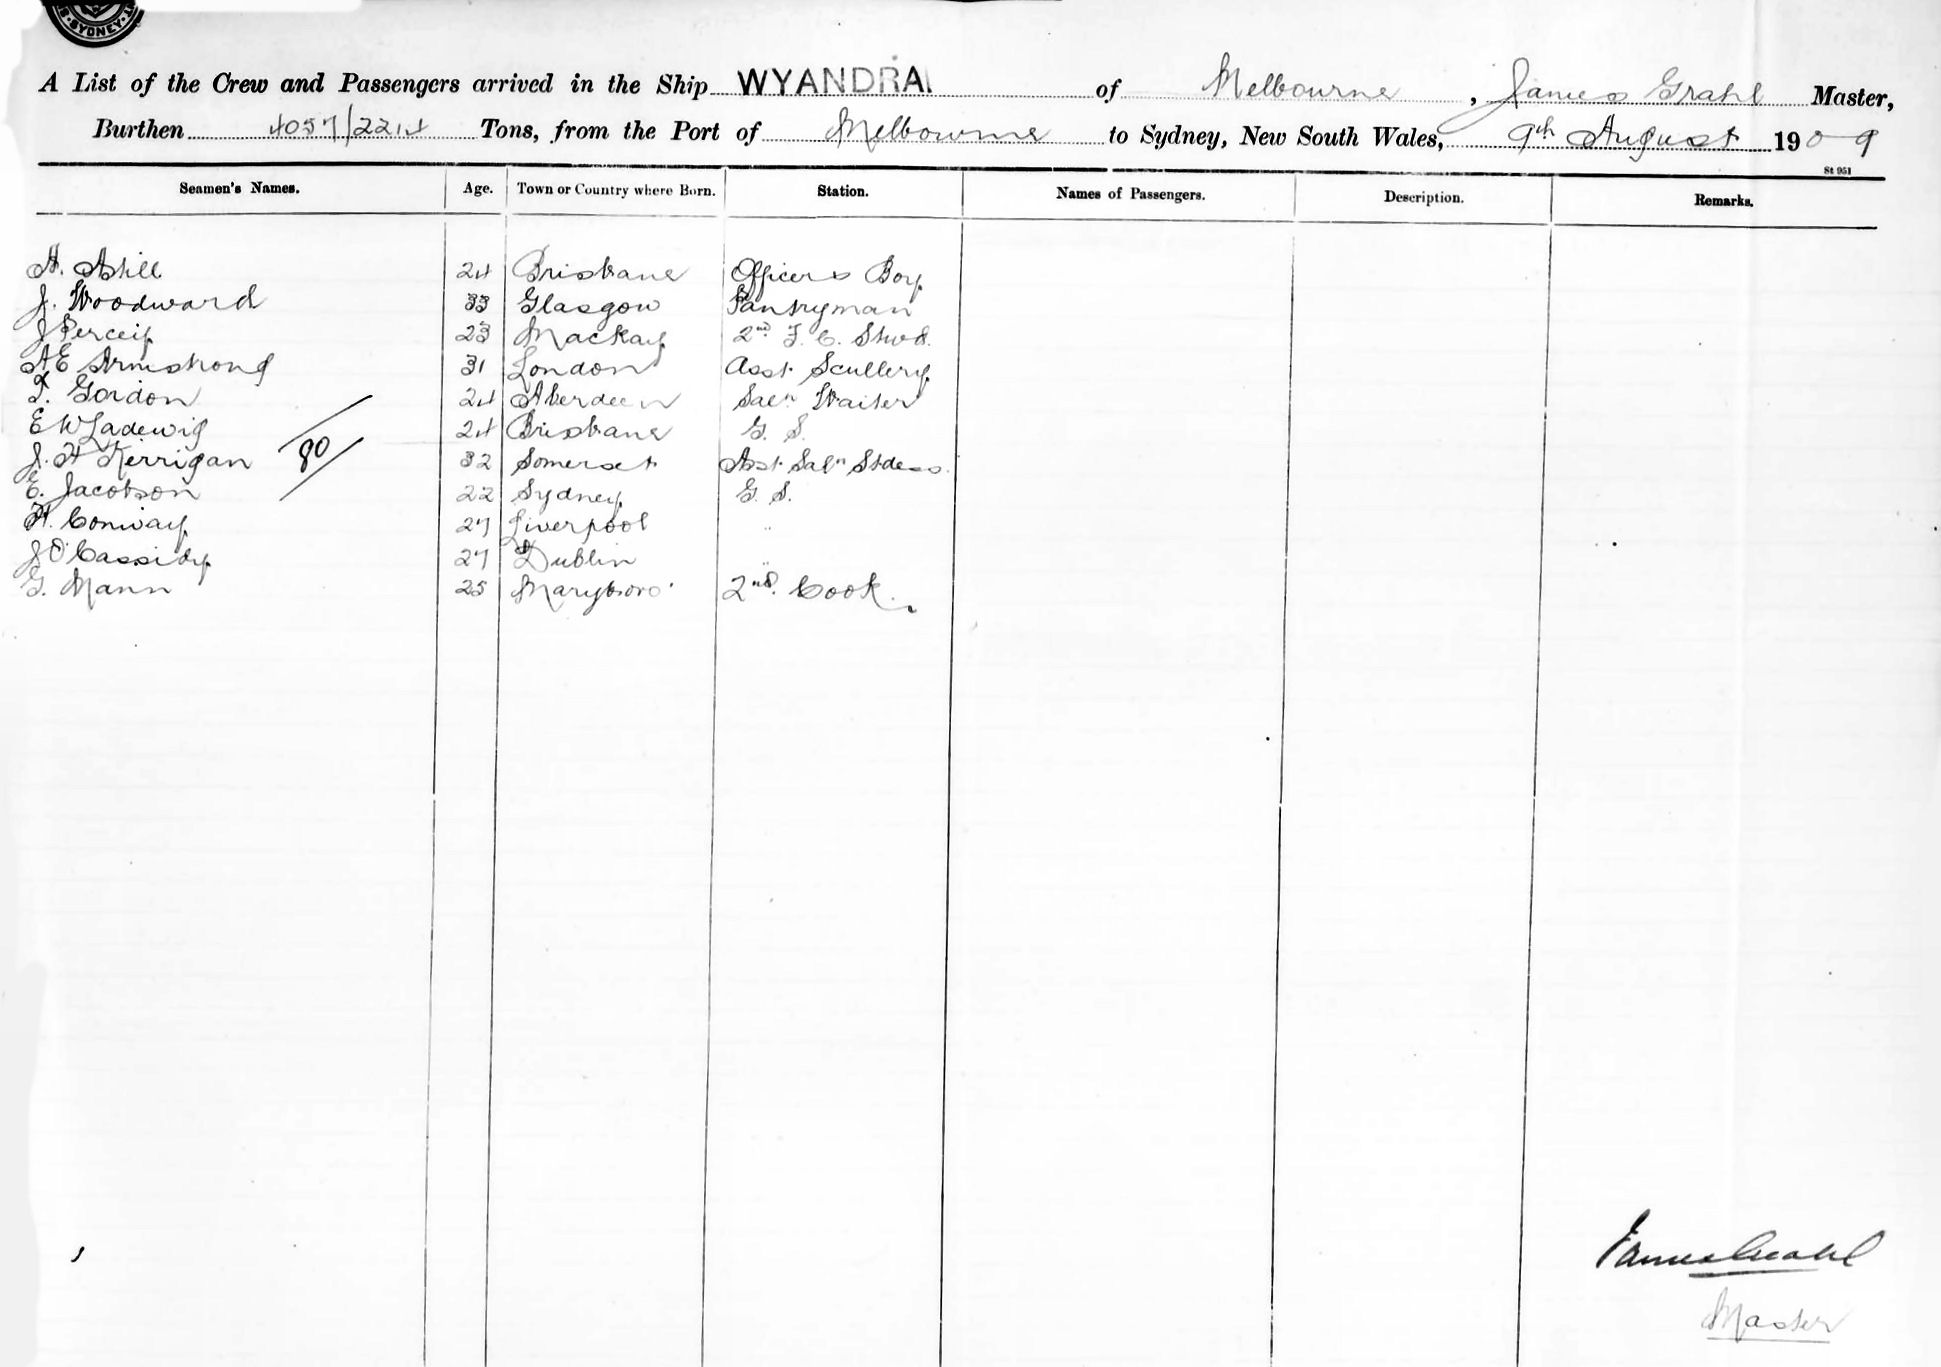 SYDNEY
A List of the Crew and Passengers arrived in the Ship WYANDRA of Melbourne, James Grahl Master,
Burthen 4057/2214 Tons, from the Port of Melbourne to Sydney, New South Wales, 9th August 1909
St 951
Seamen's Names. Age. Town or Country where Born. Station. Names of Passengers. Description. Remarks.
A. Astill 24 Brisbane Officers Boy
J. Woodward 33 Glasgow Pantryman
J Perceip 23 Mackay 2nd F. C. Stwd.
A E Armstrong 31 London Asst. Scullery
T. Gordon 24 Aberdeen Saln Waiter
E W Ladewig 24 Brisbane G. S.
J. H Kerrigan 80 32 Somerset Asst Saln Stdess.
E. Jacobson 22 Sydney G. S.
H. Conway 27 Liverpool "
J O'Cassidy 27 Dublin "
G. Mann 25 Maryboro' 2nd. Cook.
James Grahl
Master